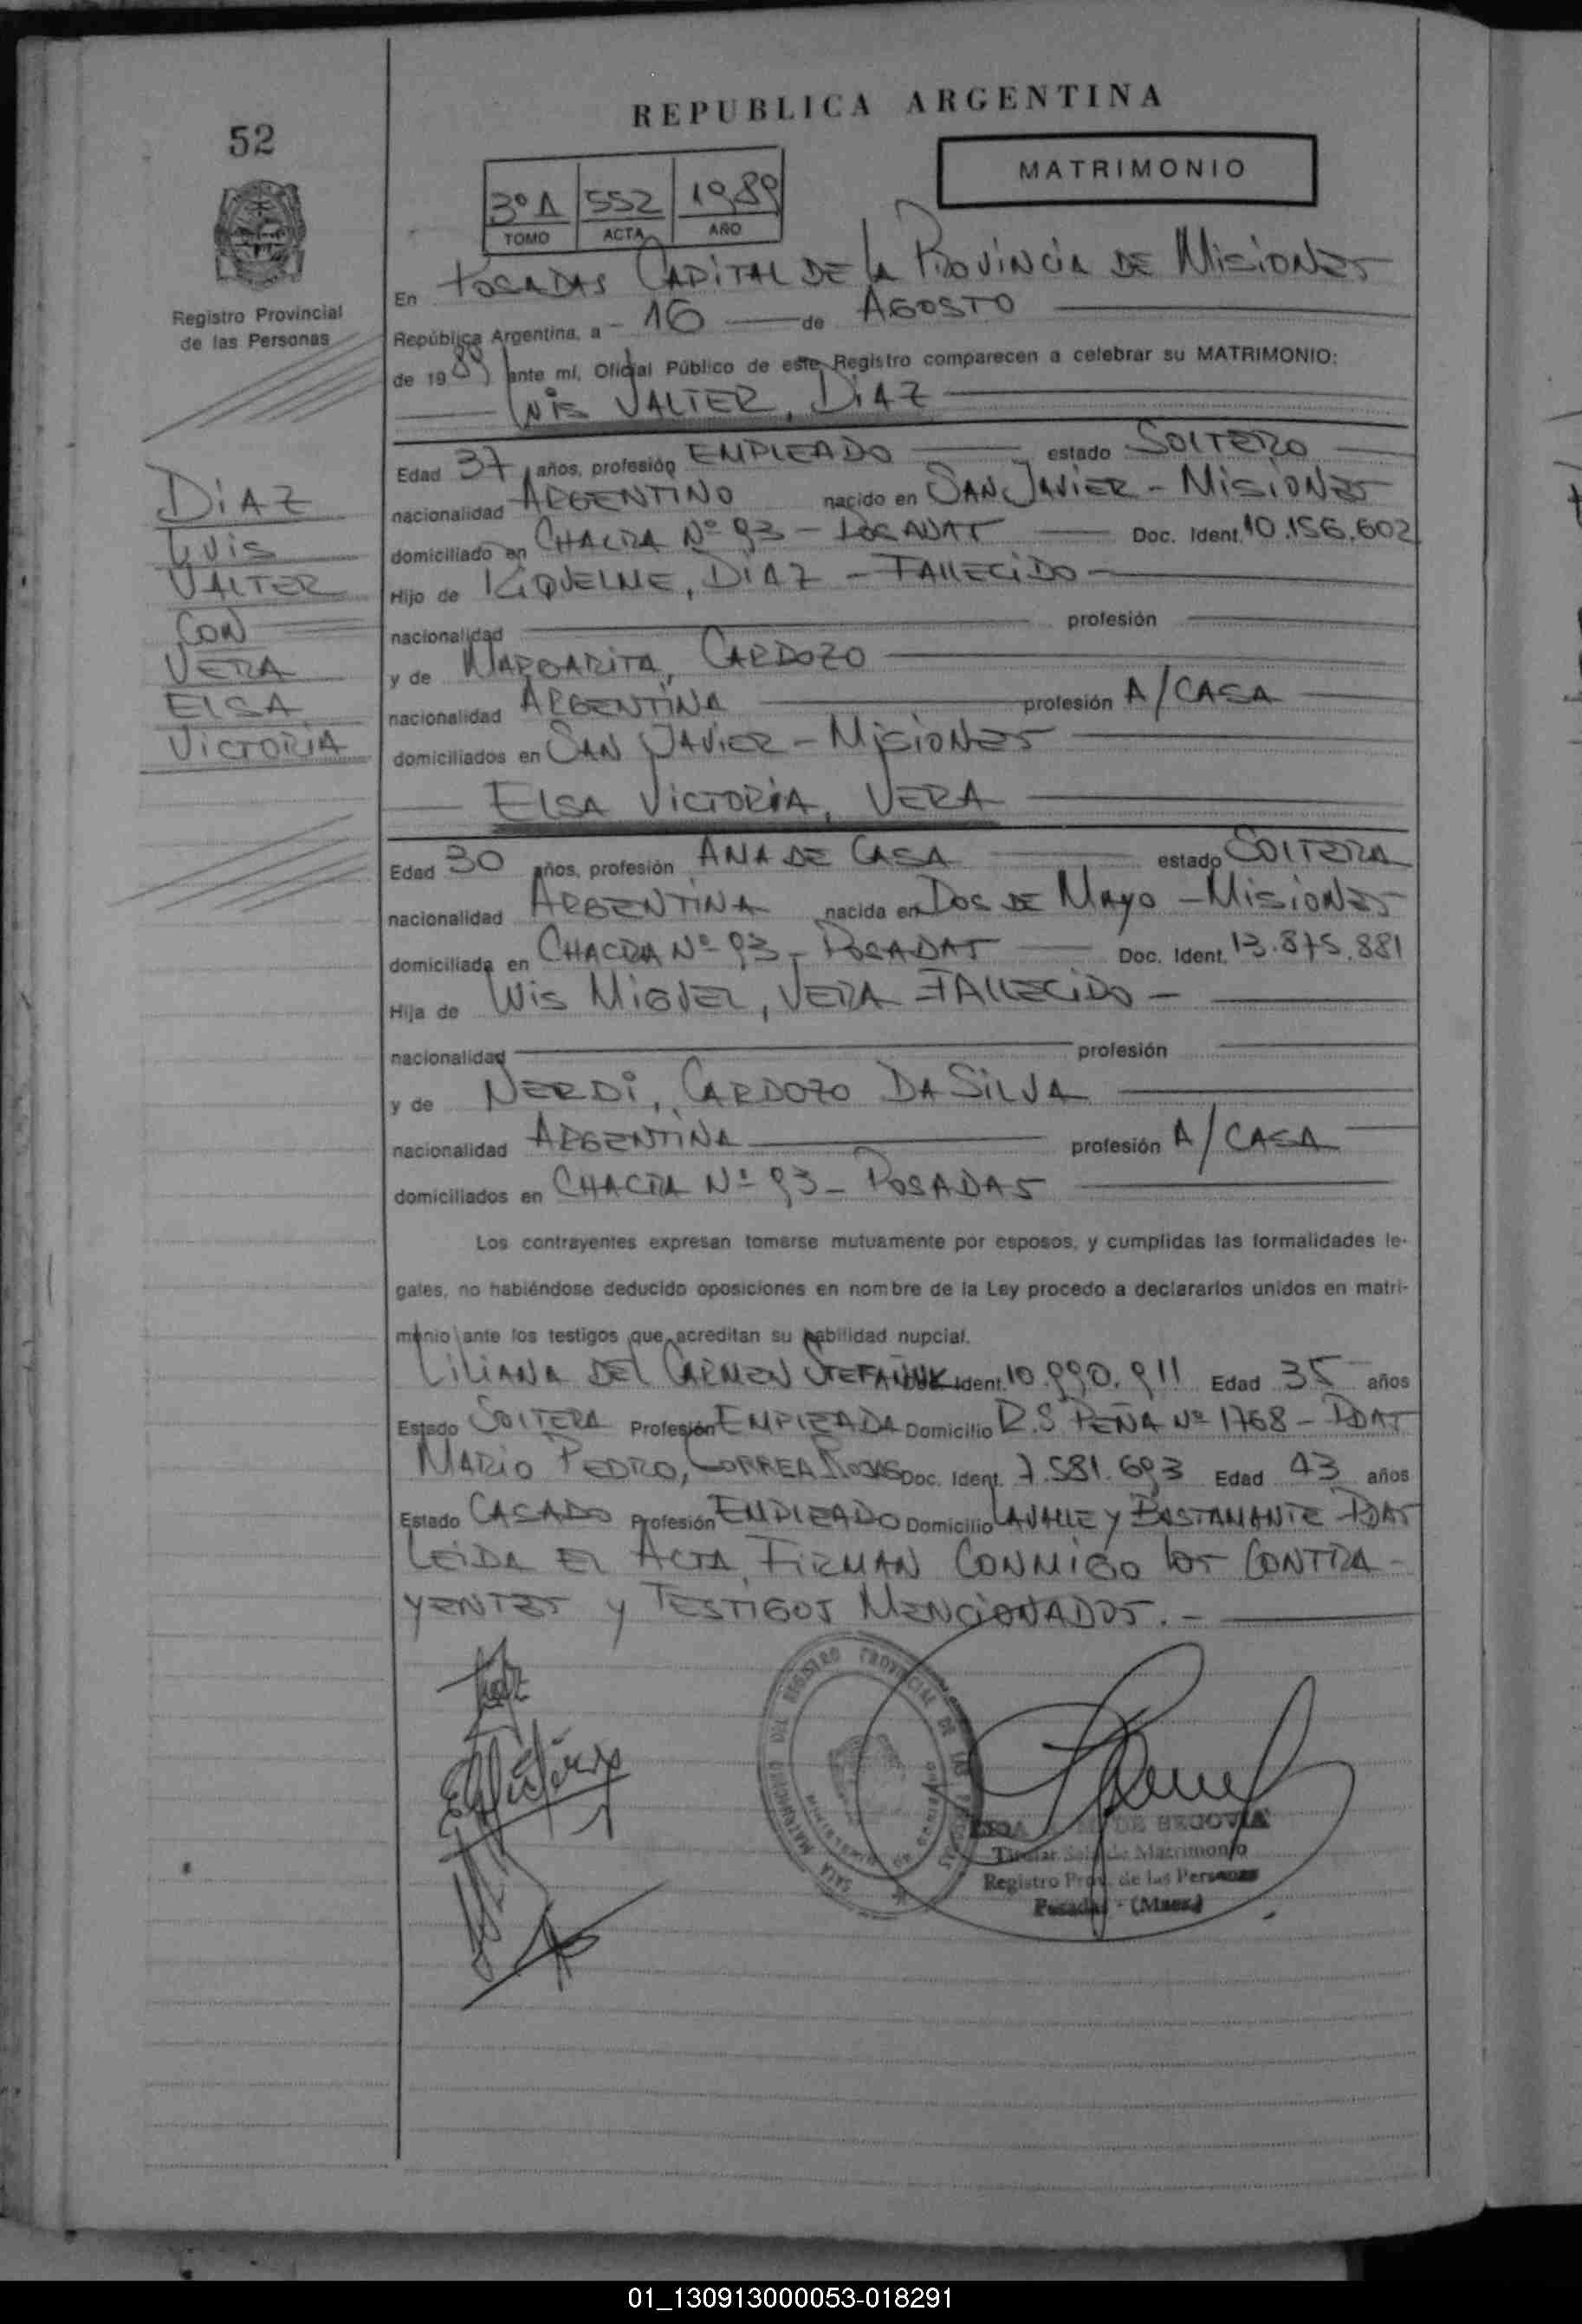 REPUBLICA ARGENTINA
52
MATRIMONIO
3º A 552 1989
TOMO ACTA AÑO
Registro Provincial
de las Personas
En POSADAS CAPITAL DE LA PROVINCIA DE MISIONES
República Argentina, a - 16 — de AGOSTO
de 1989 ante mí, Oficial Público de este Registro comparecen a celebrar su MATRIMONIO:
LUIS VALTER, DIAZ
Edad 37 años, profesión EMPLEADO estado SOLTERO
nacionalidad ARGENTINO nacido en SAN JAVIER - MISIONES
domiciliado en CHACRA Nº 93 - POSADAS Doc. Ident. 10.156.602
Hijo de RIQUELME, DIAZ - FALLECIDO -
nacionalidad profesión
y de MARGARITA, CARDOZO
nacionalidad ARGENTINA profesión A/CASA
domiciliados en SAN JAVIER - MISIONES
DIAZ
LUIS
VALTER
CON
VERA
ELSA
VICTORIA
ELSA VICTORIA, VERA
Edad 30 años, profesión AMA DE CASA estado SOLTERA
nacionalidad ARGENTINA nacida en DOS DE MAYO - MISIONES
domiciliada en CHACRA Nº 93 - POSADAS Doc. Ident. 13.875.881
Hija de LUIS MIGUEL, VERA FALLECIDO -
nacionalidad profesión
y de NERDI, CARDOZO DA SILVA
nacionalidad ARGENTINA profesión A/CASA
domiciliados en CHACRA Nº 93 - POSADAS
Los contrayentes expresan tomarse mutuamente por esposos, y cumplidas las formalidades le-
gales, no habiéndose deducido oposiciones en nombre de la Ley procedo a declararlos unidos en matri-
monio ante los testigos que acreditan su habilidad nupcial.
LILIANA DEL CARMEN Doc. Ident. 10.990.911 Edad 35 años
Estado SOLTERA Profesión EMPLEADA Domicilio R.S PEÑA Nº 1768 - PDAS
MARIO PEDRO, CORREA ROJAS Doc. Ident. 7.581.693 Edad 43 años
Estado CASADO Profesión EMPLEADO Domicilio LAVALLE Y BUSTAMANTE PDAS
LEIDA EL ACTA, FIRMAN CONMIGO LOS CONTRA-
YENTES Y TESTIGOS MENCIONADOS. -
DE SEGOVIA
Titular Sala de Matrimonio
Registro Prov. de las Personas
Posadas - (Mnes.)
01_130913000053-018291